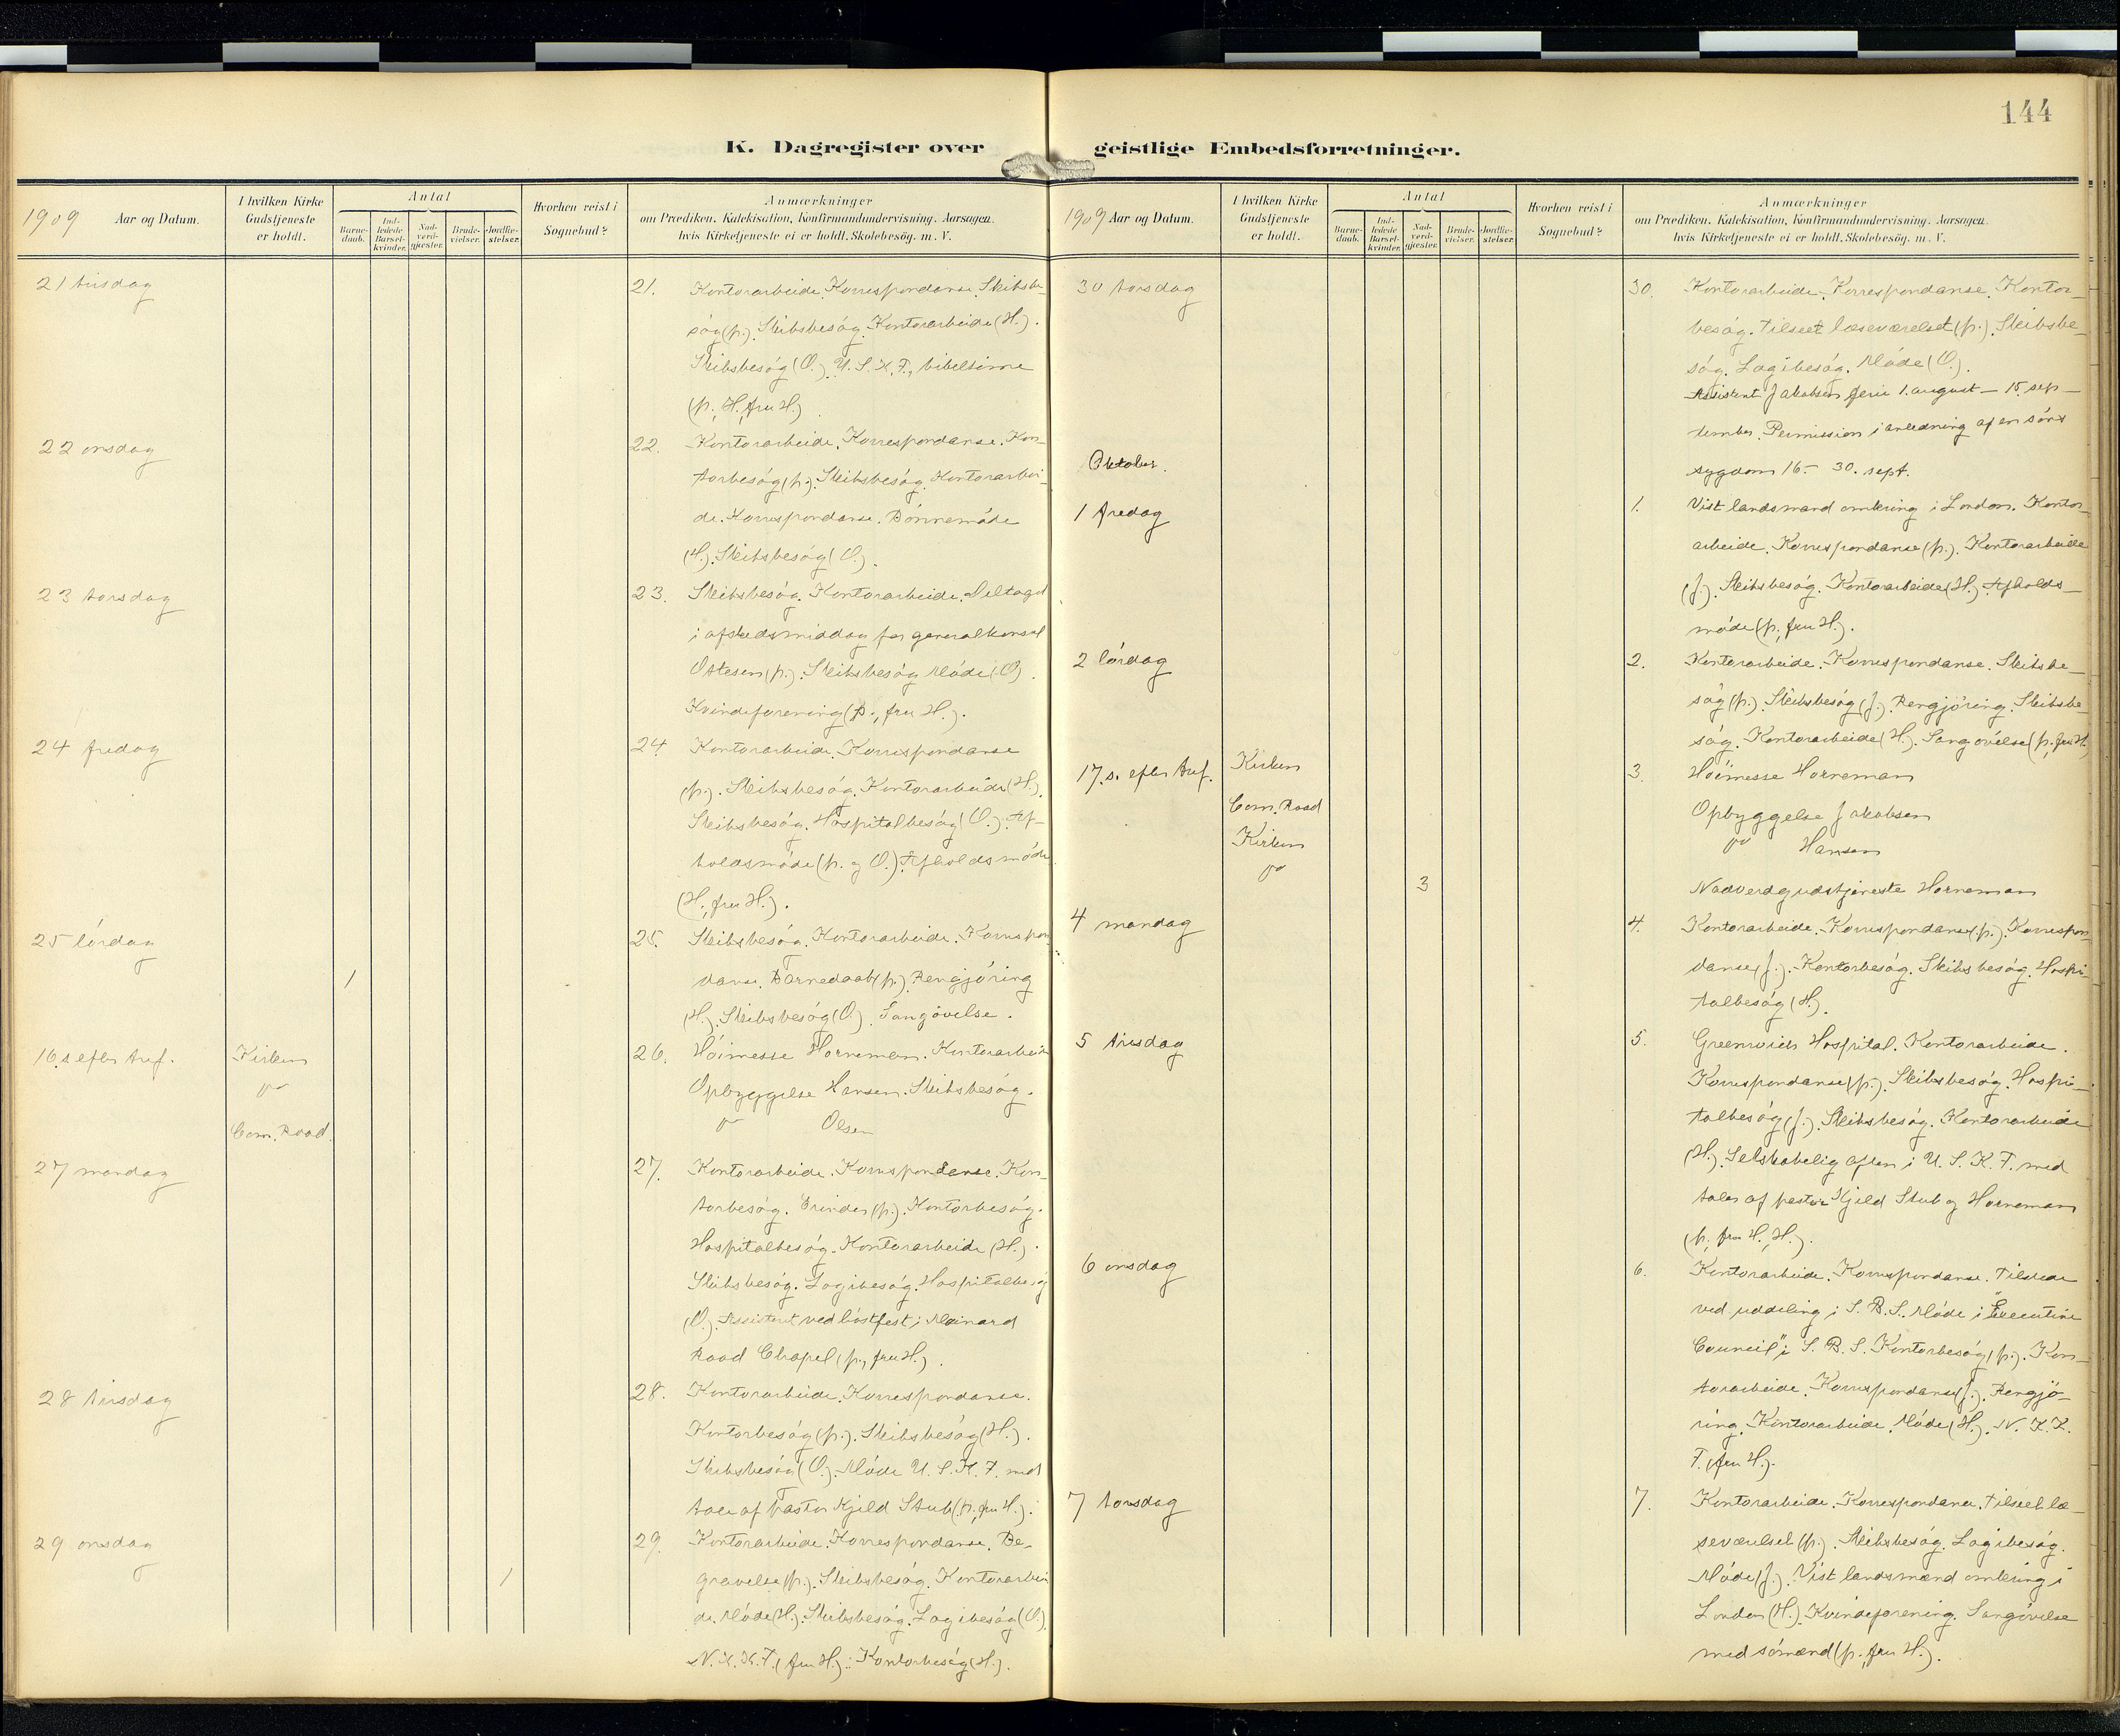 144
K. Dagregister over
1909 Aar og Datum.
I hvilken Kirke Gudstjeneste er holdt.
Antal
Barne-daab.
Ind-ledede Barsel-kvinder.
Nad-verd-gjæster.
Brude-vielser.
Jordfæ-stelser.
Hvorhen reist i Sognebud?
Anmærkninger
om Prædiken, Katekisation, Konfirmandundervisning. Aarsagen,
hvis Kirketjeneste ei er holdt. Skolebesög. m. V.
21 tirsdag
21. Kontorarbeide. Korrespondanse. Skibsbe-
søg (p.). Skibsbesøg. Kontorarbeide (H.).
Skibsbesøg (O.). U. S. K. F., bibeltime
(p., H., fru H.).
22 onsdag
22. Kontorarbeide. Korrespondanse. Kon-
torbesøg (p.). Skibsbesøg. Kontorarbei-
de. Korrespondanse. Bønnemøde
(H.). Skibsbesøg (O.).
23 torsdag
23. Skibsbesøg. Kontorarbeide. Deltaget
i afskedsmiddag for generalkonsul
Ottesen (p.). Skibsbesøg. Møde (O.).
Kvindeforening (p., fru H.).
24 fredag
24. Kontorarbeide. Korrespondanse
(p.). Skibsbesøg. Kontorarbeide (H.).
Skibsbesøg. Hospitalbesøg (O.). Af-
holdsmøde (p. og O.). Afholdsmøde
(H., fru H.).
25 lørdag
25. Skibsbesøg. Kontorarbeide. Korrespon-
1 danse. Barnedaab (p.). Rengjøring
(H.). Skibsbesøg (O.). Sangøvelse.
16. s. efter tref. Kirken
26. Høimesse Horneman. Kontorarbeide
Opbyggelse Hansen. Skibsbesøg.
Com. Road Olsen
27 mandag
27. Kontorarbeide. Korrespondanse. Kon-
torbesøg. Erinder (p.). Kontorbesøg.
Hospitalbesøg. Kontorarbeide (H.).
Skibsbesøg. Logibesøg. Hospitalbesøg
(O.). Assisteret ved høstfest i Mainard
Road Chapel (p., fru H.).
28 tirsdag
28. Kontorarbeide. Korrespondanse.
Kontorbesøg (p.). Skibsbesøg (H.).
Skibsbesøg (O.). Møde U. S. K. F. med
tale af pastor Kjeld Stub (p., fru H.).
29 onsdag
29. Kontorarbeide. Korrespondanse. Be-
1 gravelse (p.). Skibsbesøg. Kontorarbei-
de. Møde (H.). Skibsbesøg. Logibesøg (O.).
N. K. K. F. (fru H.). Kontorbesøg (H.).
geistlige Embedsforretninger.
1909 Aar og Datum.
I hvilken Kirke Gudstjeneste er holdt.
Antal
Barne-daab.
Ind-ledede Barsel-kvinder.
Nad-verd-gjæster.
Brude-vielser.
Jordfæ-stelser.
Hvorhen reist i Sognebud?
Anmærkninger
om Prædiken, Katekisation, Konfirmandundervisning. Aarsagen,
hvis Kirketjeneste ei er holdt. Skolebesög. m. V.
30 torsdag
30. Kontorarbeide. Korrespondanse. Kontor-
besøg. Tilseet læseværelset (p.). Skibsbe-
søg. Logibesøg. Møde (O.).
Assistent Jakobsen ferie 1. august - 15. sep-
tember. Permission i anledning af en søns
sygdom 16 - 30. sept.
Oktober.
1 fredag
1. Vist landsmænd omkring i London. Kontor-
arbeide. Korrespondanse (p.). Kontorarbeide
(J.). Skibsbesøg. Kontorarbeide (H.). Afholds-
møde (p., fru H.).
2 lørdag
2. Kontorarbeide. Korrespondanse. Skibsbe-
søg (p.). Skibsbesøg (J.). Rengjøring. Skibsbe-
søg. Kontorarbeide (H.). Sangøvelse (p., fru H.)
17. s. efter tref. Kirken
3. Høimesse Horneman
Com. Road Opbyggelse Jakobsen
Kirken Hansen
3 Nadverdgudstjeneste Horneman
4 mandag
4. Kontorarbeide. Korrespondanse (p.). Korrespon-
danse (J.). Kontorbesøg. Skibsbesøg. Hospi-
talbesøg (H.).
5 tirsdag
5. Greenwich Hospital. Kontorarbeide.
Korrespondanse (p.). Skibsbesøg. Hospi-
talbesøg (J.). Skibsbesøg. Kontorarbeide
(H.). Selskabelig aften i U. S. K. F. med
taler af pastor Kjeld Stub og Horneman
(p., fru H., H.).
6 onsdag
6. Kontorarbeide. Korrespondanse. Tilstede
ved uddeling i S. B. S. Møde i "Executive
Council" i S. B. S. Kontorbesøg (p.). Kon-
torarbeide. Korrespondanse (J.). Rengjø-
ring. Kontorarbeide. Møde (H.). N. K. K.
F. (fru H.).
7 torsdag
7. Kontorarbeide. Korrespondanse. Tilseet læ-
seværelset (p.). Skibsbesøg. Logibesøg.
Møde (J.). Vist landsmænd omkring i
London (H.). Kvindeforening. Sangøvelse
med sømænd (p., fru H.).